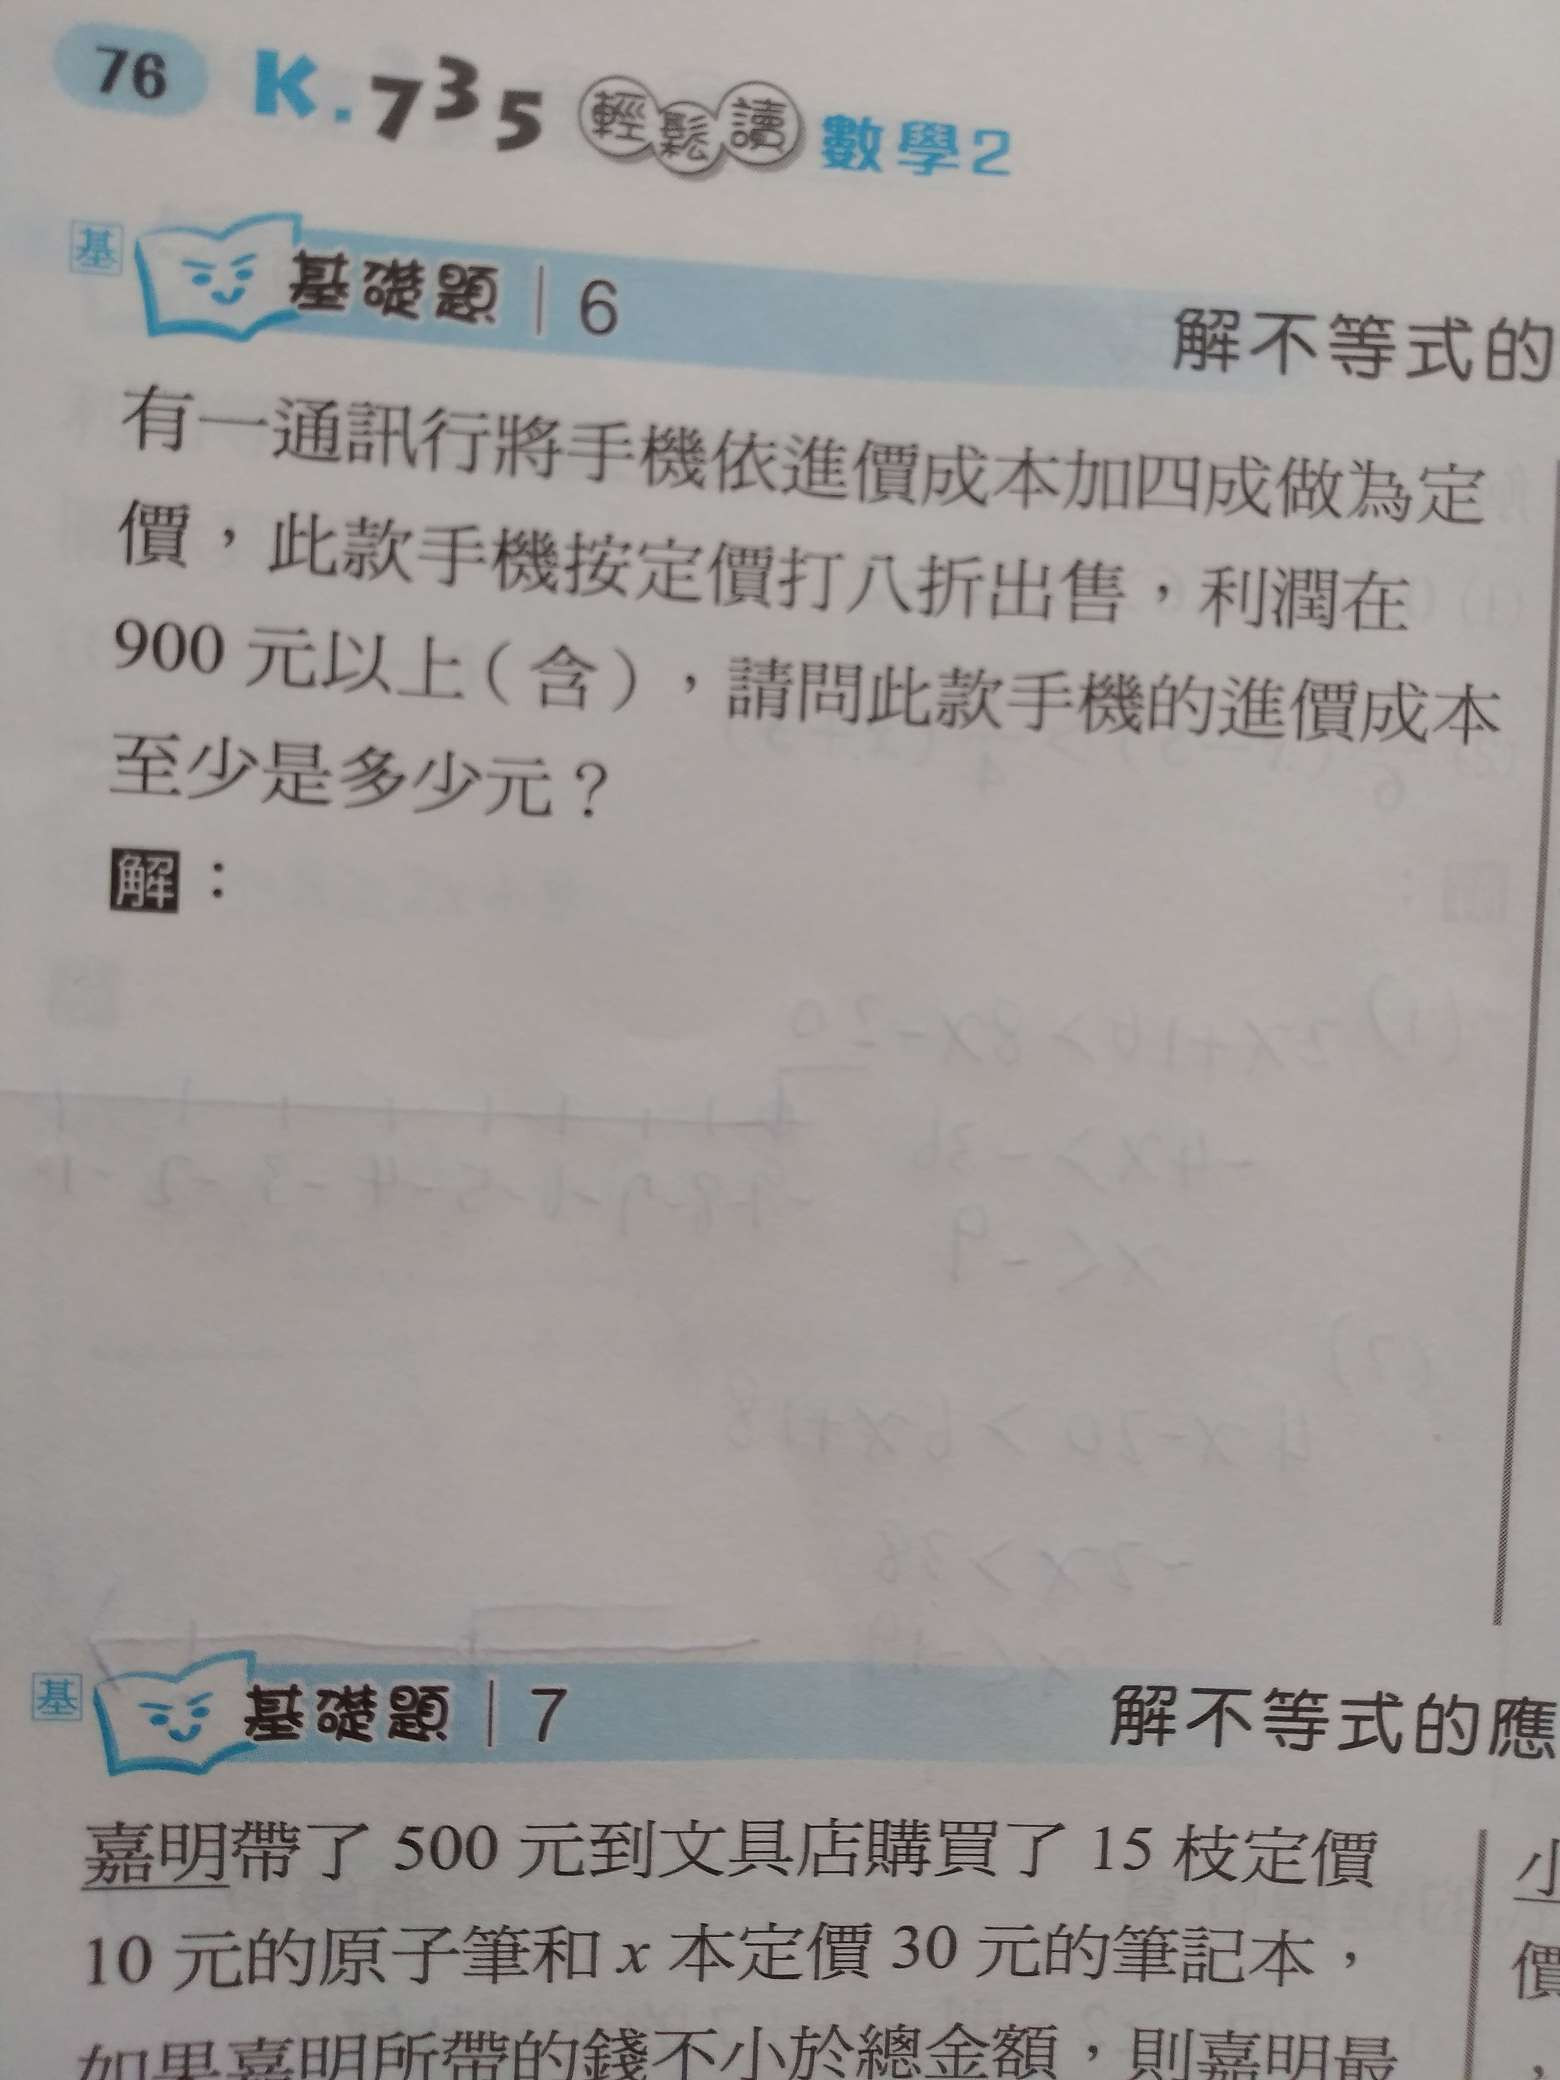 76 K.735 輕鬆讀 數學2
基 基礎題｜6 解不等式的
有一通訊行將手機依進價成本加四成做為定
價，此款手機按定價打八折出售，利潤在
900 元以上（含），請問此款手機的進價成本
至少是多少元？
解：
基 基礎題｜7 解不等式的應
嘉明帶了 500 元到文具店購買了 15 枝定價
10 元的原子筆和 x 本定價 30 元的筆記本，
如果嘉明所帶的錢不小於總金額，則嘉明最
小
價